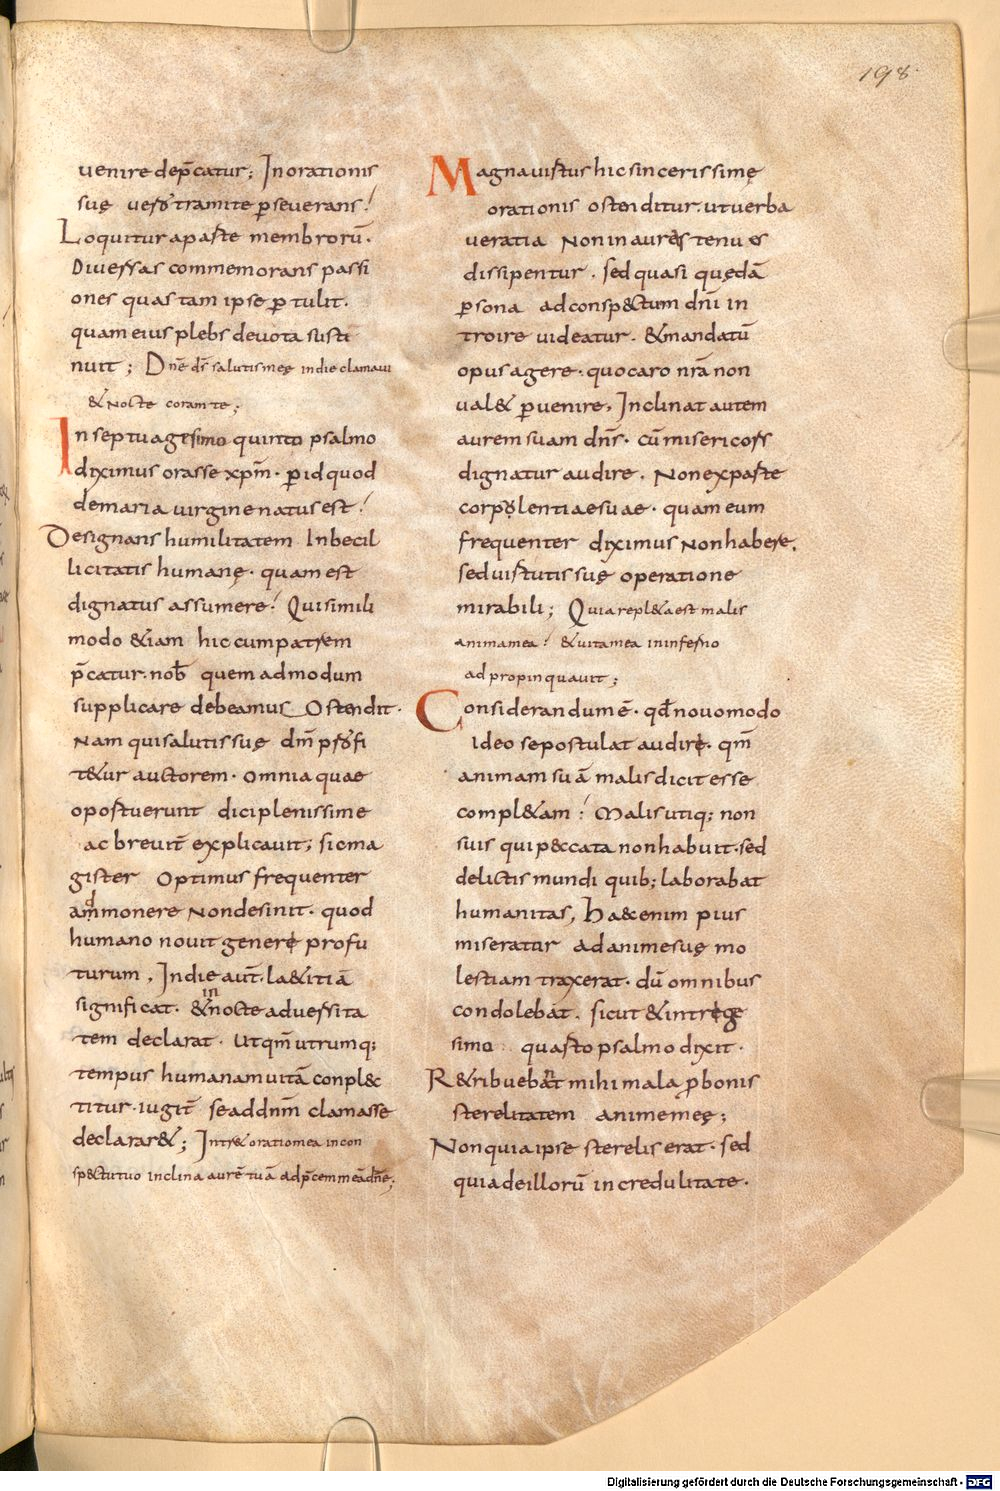 198
uenire dep̄catur; In orationis
suę uero tramite p̱seuerans.
Loquitur a parte membrorū.
Diuersas commemorans passi
ones quas tam ipse p̱tulit.
quam eius plebs deuota susti
nuit; Dnē ds̄ salutis meę in die clamaui
& nocte coram te;
In septuagesimo quinto psalmo
diximus orasse xp̄m. p̱ id quod
de maria uirgine natus est!
Designans humilitatem Inbecil
licitatis humanę. quam est
dignatus assumere! Qui simili
modo &iam hic cum patrem
p̄catur. nob̄ quem admodum
supplicare debeamus Ostendit.
Nam qui salutis suę dm̄ profi
t&ur auctorem. Omnia quae
oportuerunt dici plenissime
ac breuit̄ explicauit; sic ma
gister Optimus frequenter
ammonere Non desinit. quod
humano nouit generę profu
turum, In die aut̄ la&itiā
significat. & in nocte aduersita
tem declarat. Ut qm̄ utrumq;
tempus humanam uitā conpl&c
titur. iugit̄ se ad dn̄m clamasse
declarar&; Intr& oratio mea in con
sp&tu tuo inclina aurē tuā ad p̄cem meā dn̄e;
Magna uirtus hic sincerissimę
orationis ostenditur. ut uerba
ueratia Non in aures tenues
dissipentur. sed quasi quędā
p̱sona ad consp&ctum dn̄i in
troire uideatur. & mandatū
opus agere. quo caro nrā non
ual& p̱uenire, Inclinat autem
aurem suam dn̄s. cū misericors
dignatur audire. Non ex parte
corpolentiae suae. quam eum
frequenter diximus Non habere,
sed uirtutis suę operatione
mirabili; Quia repl&a est malis
anima mea! & uita mea in inferno
adpropinquauit;
Considerandum ē. qđ nouo modo
Ideo se postulat audirę. qm̄
animam suā malis dicit esse
compl&am! Malis utiq; non
suis qui p&ccata non habuit. sed
delictis mundi quib; laborabat
humanitas, Ha&c enim pius
miseratur ad animę suę mo
lestiam traxerat. dū omnibus
condolebat. sicut & in trięge
simo quarto psalmo dixit.
R&ribuebant mihi mala p̱ bonis
sterelitatem animę meę;
Non quia ipse sterelis erat. sed
quia de illorū incredulitate.
Digitalisierung gefördert durch die Deutsche Forschungsgemeinschaft - DFG